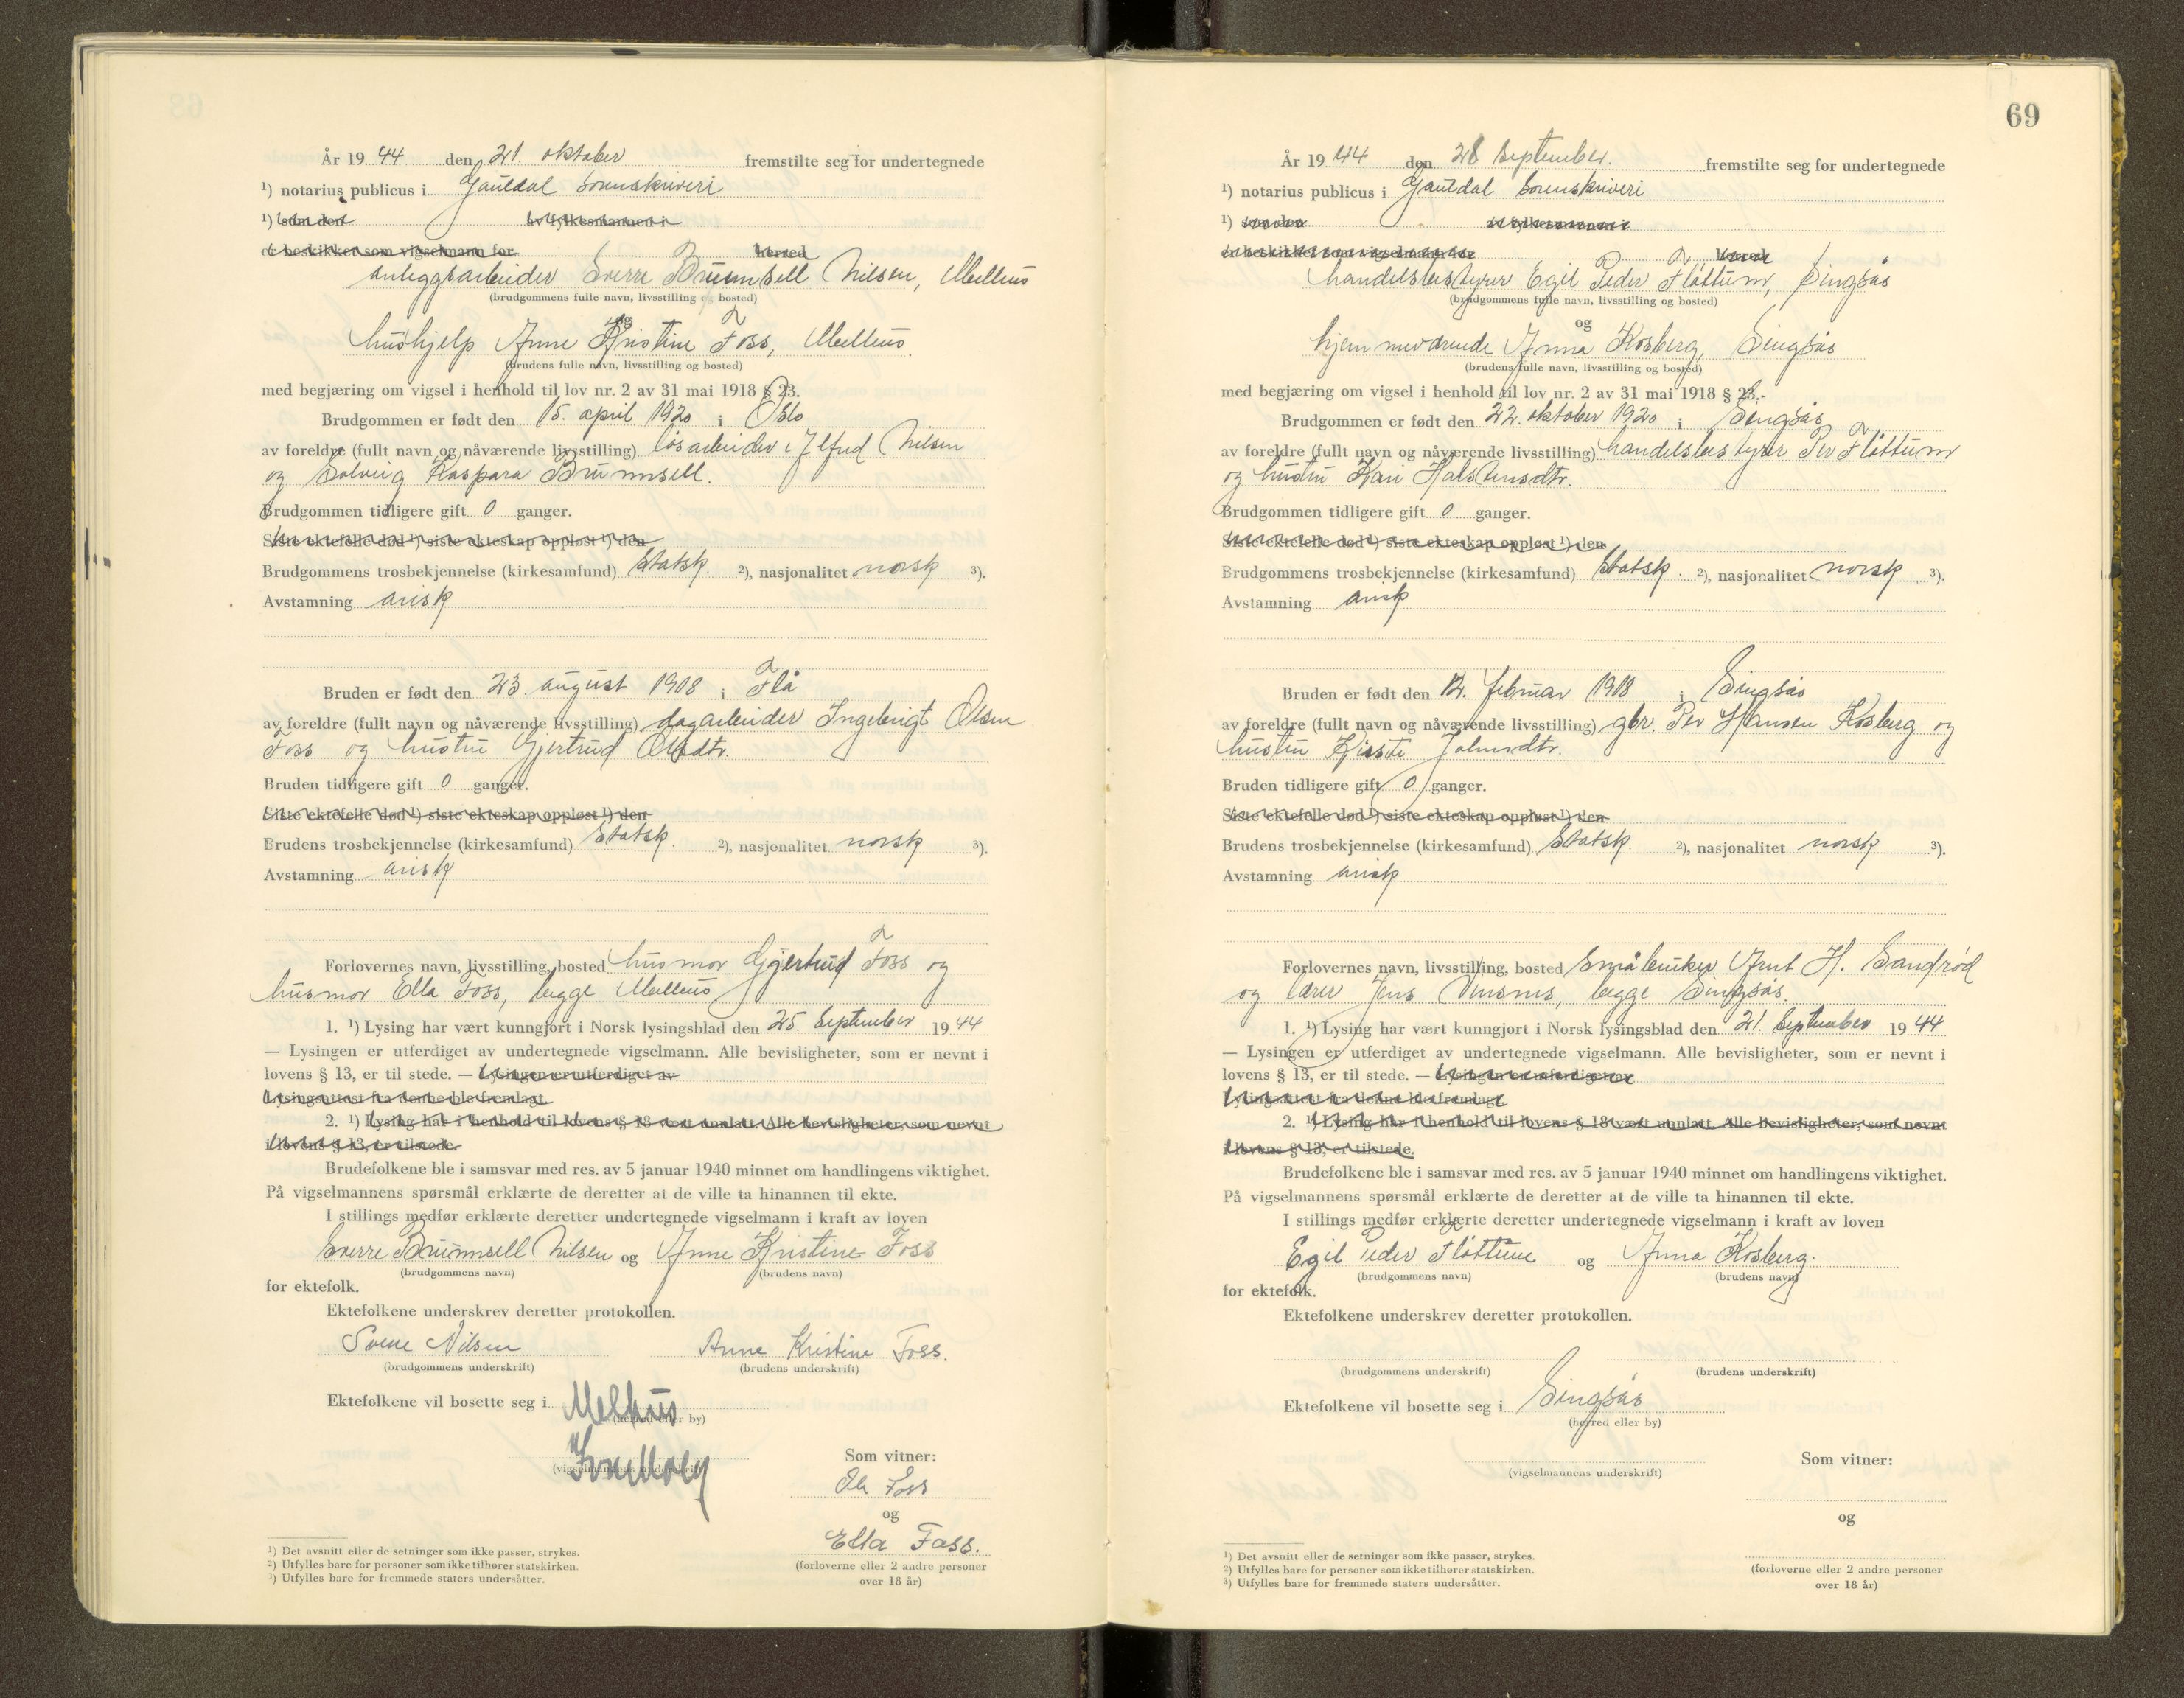 År 19 44 den 21. oktober fremstilte seg for undertegnede
¹) notarius publicus i Gauldal sorenskriveri
¹) som den av fylkesmannen i
er beskikket som vigselmann for herred
anleggsarbeider Sverre Brunnsell Nilsen, Melhus
(brudgommens fulle navn, livsstilling og bosted)
og
hushjelp Anne Kristine Foss, Melhus.
(brudens fulle navn, livsstilling og bosted)
med begjæring om vigsel i henhold til lov nr. 2 av 31 mai 1918 § 23.
Brudgommen er født den 15. april 1920 i Oslo
av foreldre (fullt navn og nåværende livsstilling) løsarbeider Alfred Nilsen
og Solveig Kaspara Brunnsell.
Brudgommen tidligere gift 0 ganger.
Siste ektefelle død ¹) siste ekteskap oppløst ¹) den
Brudgommens trosbekjennelse (kirkesamfund) Statsk. ²), nasjonalitet norsk ³).
Avstamning arisk
Bruden er født den 23. august 1908 i Flå
av foreldre (fullt navn og nåværende livsstilling) dagarbeider Ingebrigt Olsen
Foss og hustru Gjertrud Olsdtr.
Bruden tidligere gift 0 ganger.
Siste ektefelle død ¹) siste ekteskap oppløst ¹) den
Brudens trosbekjennelse (kirkesamfund) Statsk. ²), nasjonalitet norsk ³).
Avstamning arisk
Forlovernes navn, livsstilling, bosted husmor Gjertrud Foss og
husmor Ella Foss, begge Melhus
1. ¹) Lysing har vært kunngjort i Norsk lysingsblad den 25. september 19 44
— Lysingen er utferdiget av undertegnede vigselmann. Alle bevisligheter, som er nevnt i
lovens § 13, er til stede. — Lysingen er utferdiget av
Lysingsattest fra denne ble fremlagt.
2. ¹) Lysing har i henhold til lovens § 18 vært unnlatt. Alle bevisligheter, som nevnt
i lovens § 13, er tilstede.
Brudefolkene ble i samsvar med res. av 5 januar 1940 minnet om handlingens viktighet.
På vigselmannens spørsmål erklærte de deretter at de ville ta hinannen til ekte.
I stillings medfør erklærte deretter undertegnede vigselmann i kraft av loven
Sverre Brunnsell Nilsen og Anne Kristine Foss
(brudgommens navn) (brudens navn)
for ektefolk.
Ektefolkene underskrev deretter protokollen.
Sverre Nilsen Anne Kristine Foss.
(brudgommens underskrift) (brudens underskrift)
Ektefolkene vil bosette seg i Melhus
(herred eller by)
(vigselmannens underskrift)
Som vitner:
Ole Foss
og
Ella Foss.
(forloverne eller 2 andre personer
over 18 år)
¹) Det avsnitt eller de setninger som ikke passer, strykes.
²) Utfylles bare for personer som ikke tilhører statskirken.
³) Utfylles bare for fremmede staters undersåtter.
69
År 19 44 den september. fremstilte seg for undertegnede
¹) notarius publicus i Gauldal sorenskriveri
¹) som den av fylkesmannen i
er beskikket som vigselmann for herred
handelsbestyrer Egil Peder Fløttum, Singsås
(brudgommens fulle navn, livsstilling og bosted)
og
hjemmeværende Anna Kosberg, Singsås
(brudens fulle navn, livsstilling og bosted)
med begjæring om vigsel i henhold til lov nr. 2 av 31 mai 1918 § 23.
Brudgommen er født den 22. oktober 1920 i Singsås
av foreldre (fullt navn og nåværende livsstilling) handelsbestyrer Per Fløttum
og hustru Kari Halstensdtr.
Brudgommen tidligere gift 0 ganger.
Siste ektefelle død ¹) siste ekteskap oppløst ¹) den
Brudgommens trosbekjennelse (kirkesamfund) Statsk. ²), nasjonalitet norsk ³).
Avstamning arisk
Bruden er født den 12. februar 1918 i Singsås
av foreldre (fullt navn og nåværende livsstilling) gbr. Per Hansen Kosberg og
hustru Kjersti Johnsdtr.
Bruden tidligere gift 0 ganger.
Siste ektefelle død ¹) siste ekteskap oppløst ¹) den
Brudens trosbekjennelse (kirkesamfund) Statsk. ²), nasjonalitet norsk ³).
Avstamning arisk
Forlovernes navn, livsstilling, bosted småbruker Arnt H. Sandrød
og lærer Jens begge Singsås.
1. ¹) Lysing har vært kunngjort i Norsk lysingsblad den 21. september 19 44
— Lysingen er utferdiget av undertegnede vigselmann. Alle bevisligheter, som er nevnt i
lovens § 13, er til stede. — Lysingen er utferdiget av
Lysingsattest fra denne ble fremlagt.
2. ¹) Lysing har i henhold til lovens § 18 vært unnlatt. Alle bevisligheter, som nevnt
i lovens § 13, er tilstede.
Brudefolkene ble i samsvar med res. av 5 januar 1940 minnet om handlingens viktighet.
På vigselmannens spørsmål erklærte de deretter at de ville ta hinannen til ekte.
I stillings medfør erklærte deretter undertegnede vigselmann i kraft av loven
Egil Peder Fløttum og Anna Kosberg.
(brudgommens navn) (brudens navn)
for ektefolk.
Ektefolkene underskrev deretter protokollen.
(brudgommens underskrift) (brudens underskrift)
Ektefolkene vil bosette seg i Singsås
(herred eller by)
(vigselmannens underskrift)
Som vitner:
og
(forloverne eller 2 andre personer
over 18 år)
¹) Det avsnitt eller de setninger som ikke passer, strykes.
²) Utfylles bare for personer som ikke tilhører statskirken.
³) Utfylles bare for fremmede staters undersåtter.